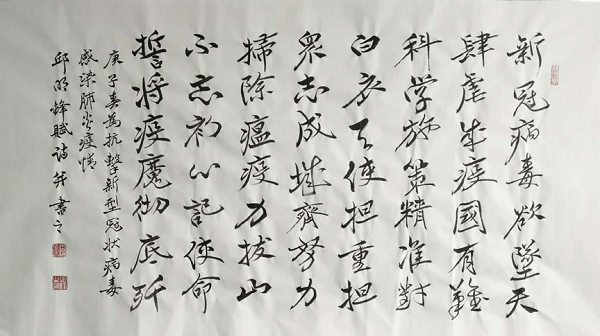 新冠病毒欲墜天
肆虐生疫國有難
科学施策精准對
白衣天使担重担
衆志成城齊努力
掃除瘟疫力拔山
不忘初心記使命
誓将疫魔彻底歼
庚子春為抗擊新型冠状病毒
感染肺炎疫情
邱明鋒賦詩并書之